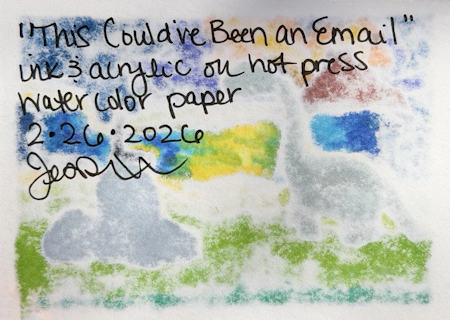 "This Could've Been an Email"
ink & acrylic on hot press
watercolor paper
2·26·2026